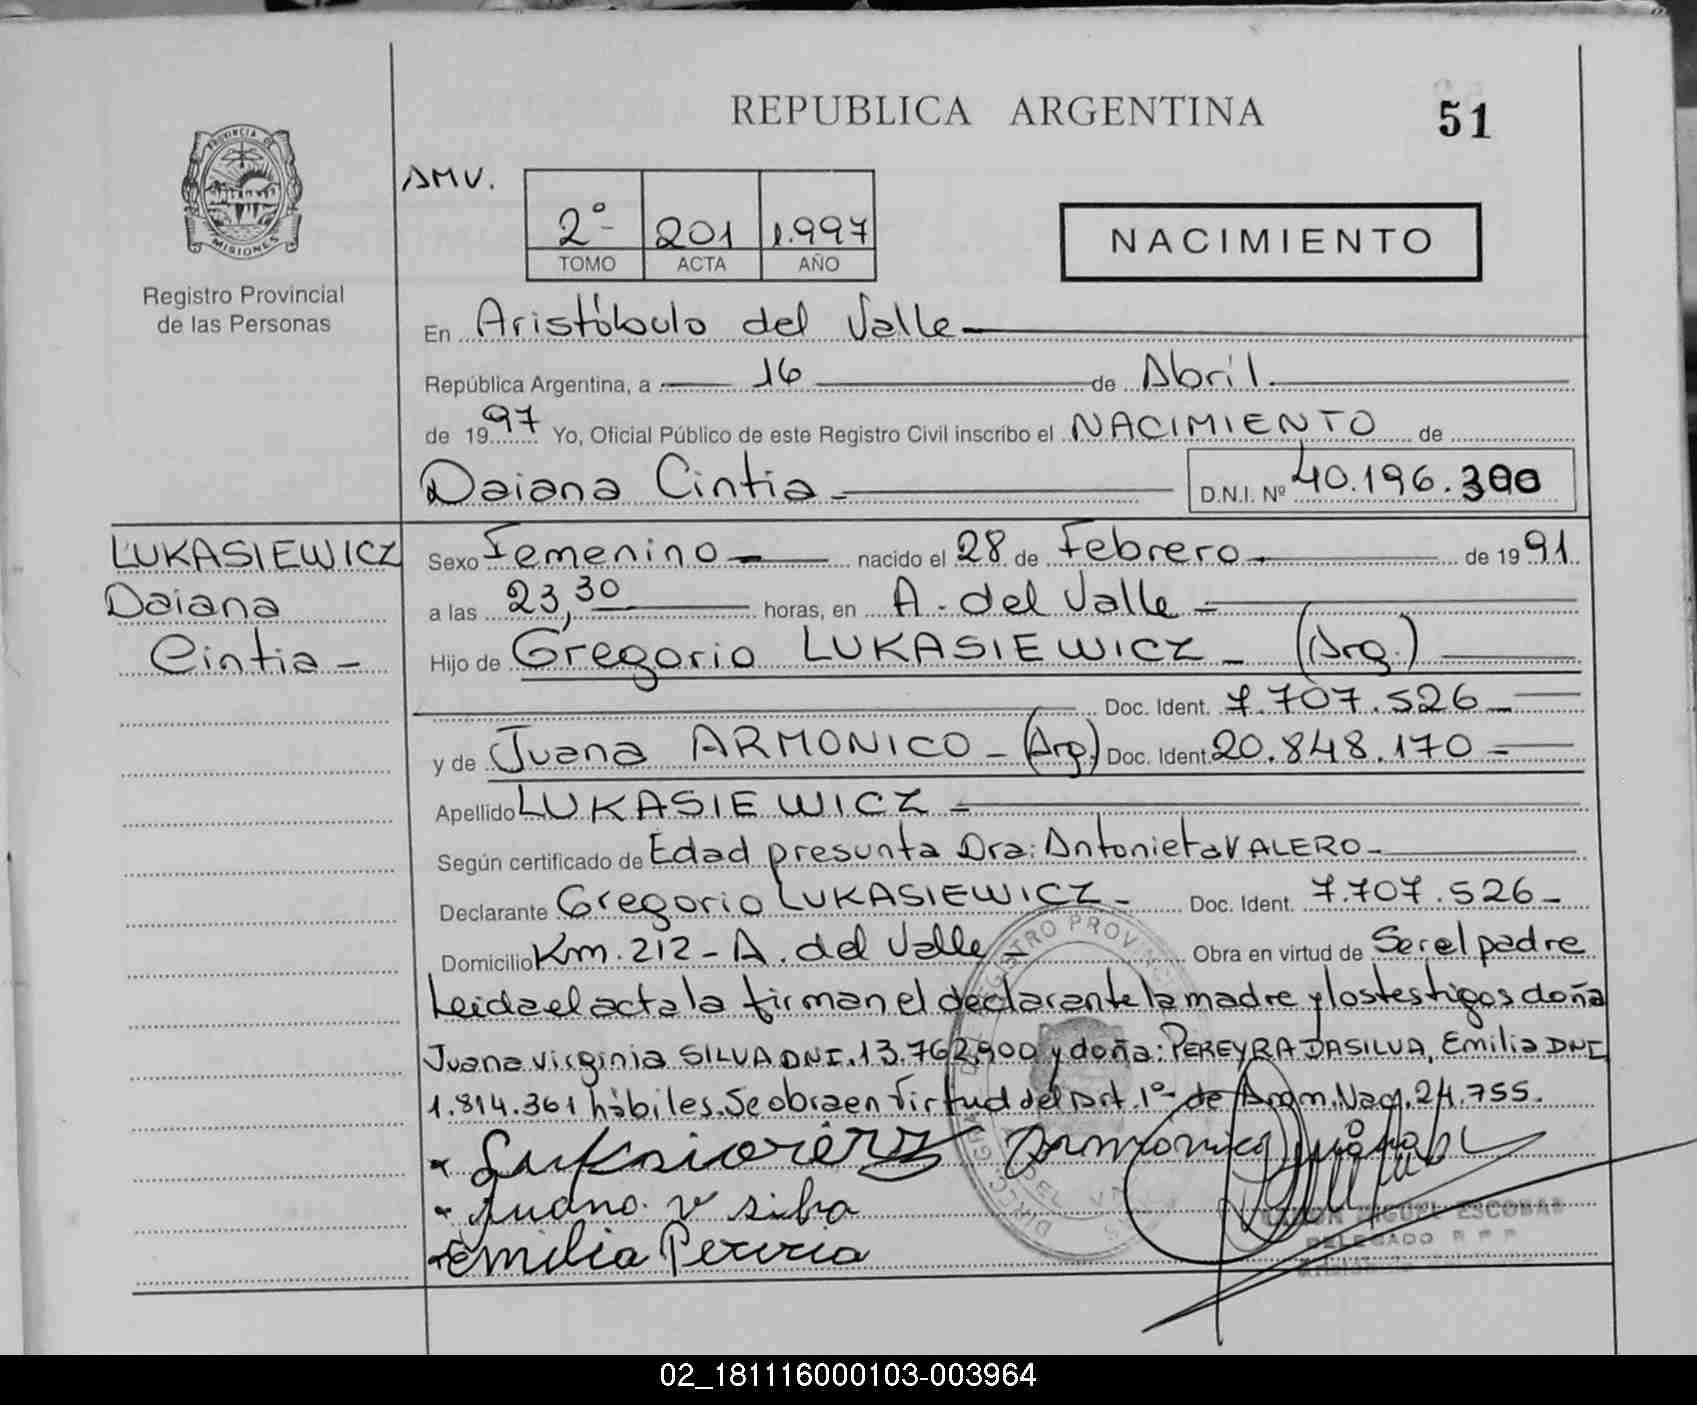 REPUBLICA ARGENTINA
51
PROVINCIA DE
MISIONES
Registro Provincial
de las Personas
AMV.
2º- 201 1.997
TOMO ACTA AÑO
NACIMIENTO
En Aristóbulo del Valle
República Argentina, a 16 de Abril
de 1997 Yo, Oficial Público de este Registro Civil inscribo el NACIMIENTO de
Daiana Cintia D.N.I. Nº 40.196.300
LUKASIEWICZ
Daiana
Cintia -
Sexo Femenino nacido el 28 de Febrero de 1991
a las 23,30 horas, en A. del Valle
Hijo de Gregorio LUKASIEWICZ - (Arg.)
Doc. Ident. 7.707.526
y de Juana ARMONICO - (Arg.) Doc. Ident. 20.848.170
Apellido LUKASIEWICZ
Según certificado de Edad presunta Dra: Antonieta VALERO -
Declarante Gregorio LUKASIEWICZ - Doc. Ident. 7.707.526 -
Domicilio Km. 212 - A. del Valle Obra en virtud de Ser el padre
Leida el acta la firman el declarante la madre y los testigos doña
Juana Virginia SILVA DNI. 13.762.900 y doña: PEREYRA DASILVA, Emilia DNI
1.814.361 hábiles. Se obra en virtud del Art. 1º de Nac. 24.755.
Juana v silva
Emilia Pereira
MIGUEL ESCOBAR
DELEGADO R P P
02_181116000103-003964